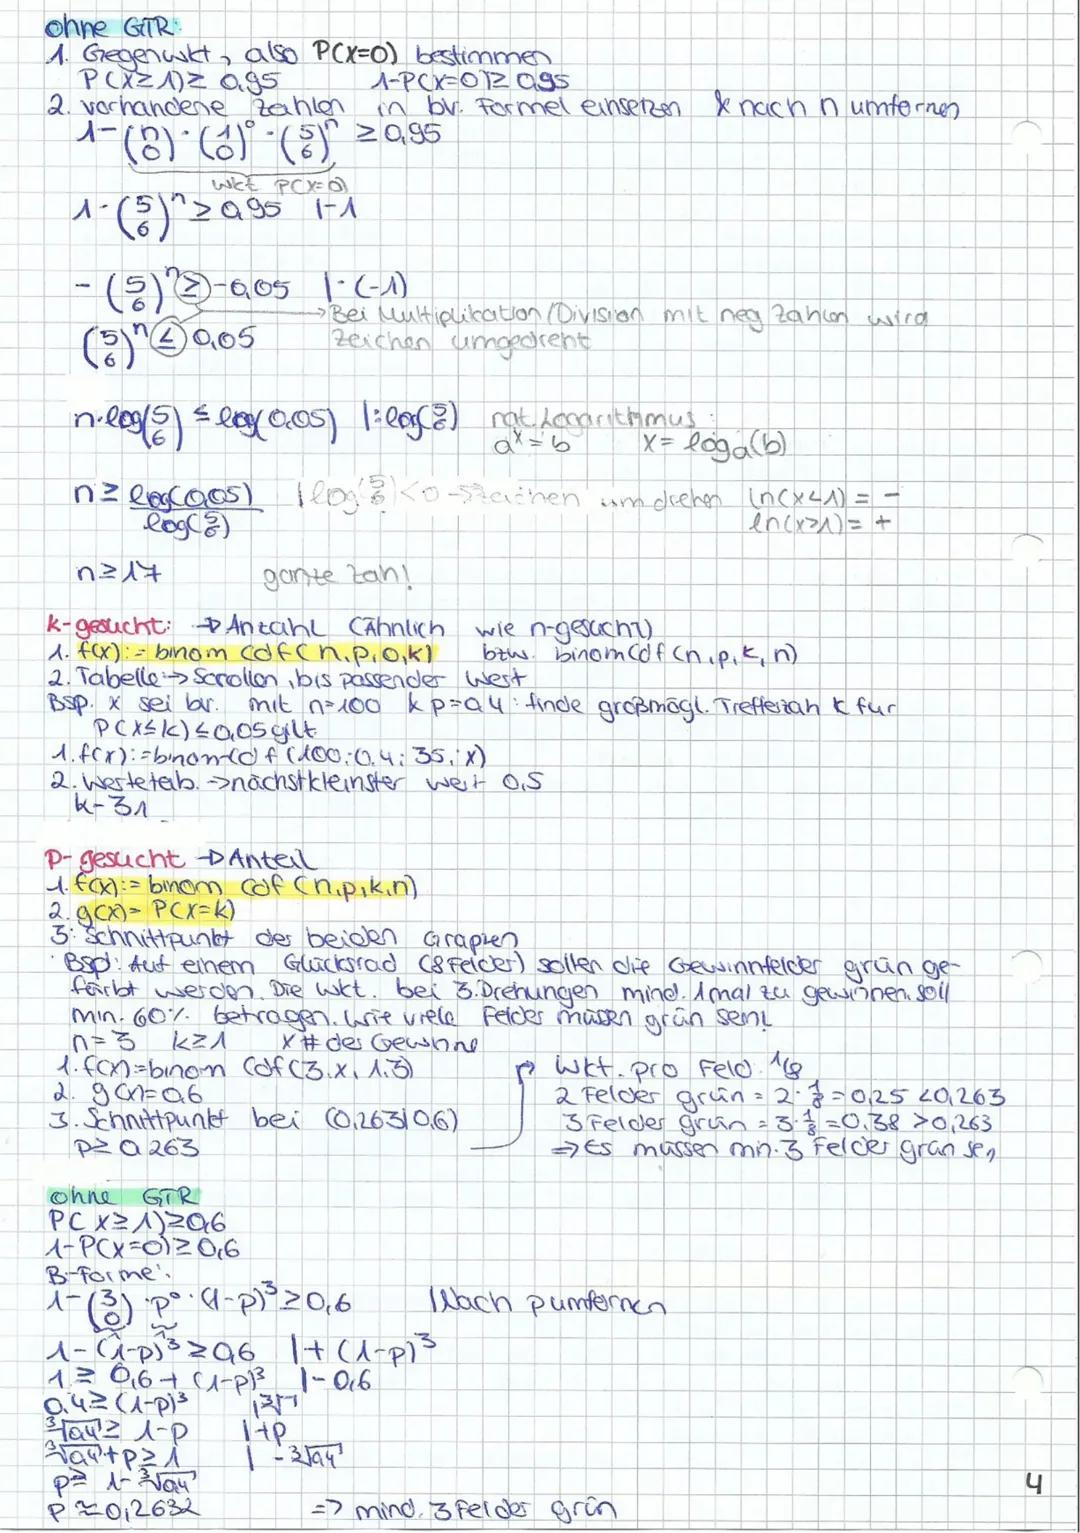 ohne GTR:
1. Gegenwkt, also P(X=0) bestimmen
P(X≥1)≥ 0,95 1-P(X=0)≥ 0,95
2. vorhandene Zahlen in bv. Formel einsetzen & nach n umformen
1-(n 0)·(1 6)⁰·(5 6)ⁿ ≥ 0,95
Wkt P(X=0)
1-(5 6)ⁿ ≥ 0,95 |-1
-(5 6)ⁿ ≥ -0,05 |·(-1)
→Bei Multiplikation/Division mit neg Zahlen wird
(5 6)ⁿ ≤ 0,05 Zeichen umgedreht
n·log(5 6) ≤ log(0,05) |:log(5/6) nat. Logarithmus:
aˣ=b x= logₐ(b)
n≥ log(0,05)/log(5/6) |log(5/6)<0→Zeichen umdrehen ln(x<1) = -
ln(x>1) = +
n≥17 ganze Zahl!
k-gesucht: → Anzahl (Ähnlich wie n-gesucht)
1. f(x):= binom cdf(n,p,0,k) bzw. binomcdf(n,p,k,n)
2. Tabelle → Scrollen, bis passender Wert
Bsp. X sei bv. mit n=100 & p=0,4: finde größmögl. Trefferzah k für
P(X≤k)≤0,05 gilt
1. f(x):=binomcdf(100;0,4;35;x)
2. Wertetab. →nächstkleinster wert 0,5
k-31
p-gesucht → Anteil
1. f(x):= binom cdf(n,p,k,n)
2. g(x)= P(X=k)
3. Schnittpunkt der beiden Graphen
Bsp: Auf einem Glücksrad (8 Felder) sollen die Gewinnfelder grün ge-
färbt werden. Die Wkt. bei 3.Drehungen mind. 1mal zu gewinnen, soll
min. 60% betragen. Wie viele Felder müssen grün sein!
n=3 k≥1 X # der Gewinne
1. f(x)=binom cdf(3,x,1,3) Wkt. pro Feld 1/8
2. g(x)=0,6 2 Felder grün = 2·1/8=0,25 <0,263
3. Schnittpunkt bei (0,263|0,6) 3 Felder grün = 3·1/8=0,38 >0,263
p≥0,263 ⇒ Es müssen min. 3 Felder grün sein
ohne GTR
P(X≥1)≥0,6
1-P(X=0)≥0,6
B-Formel:
1-(3 0)·p⁰·(1-p)³≥0,6 |Nach p umformen
1-(1-p)³≥0,6 |+(1-p)³
1≥ 0,6+(1-p)³ |-0,6
0,4≥(1-p)³ |³√
³√0,4≥ 1-p |+p
³√0,4+p≥1 |-³√0,4
p≥ 1-³√0,4
p≈0,2632 ⇒ mind. 3 Felder grün
4